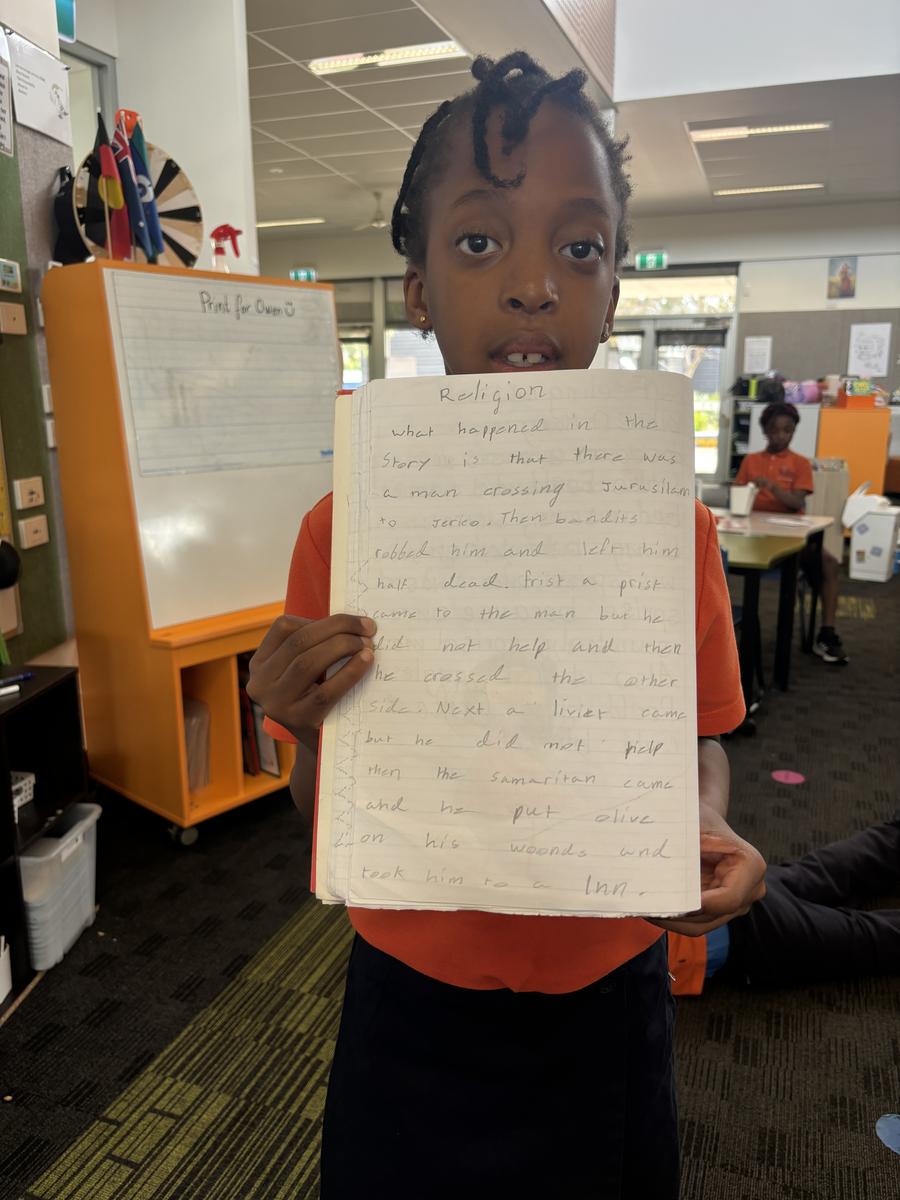 Print for Owen
Religion
what happened in the
Story is that there was
a man crossing Jurusilam
to Jerico. Then bandits
robbed him and left him
half dead. frist a prist
came to the man but he
did not help and then
he crossed the other
side. Next a liviet came
but he did not help
then the samaritan came
and he put olive
on his woonds and
took him to a Inn.